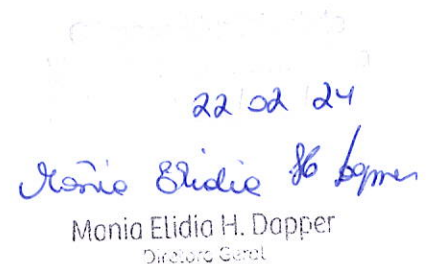 22 02 24
Mônia Elidia H. Dapper
Monia Elidia H. Dapper
Diretora Geral